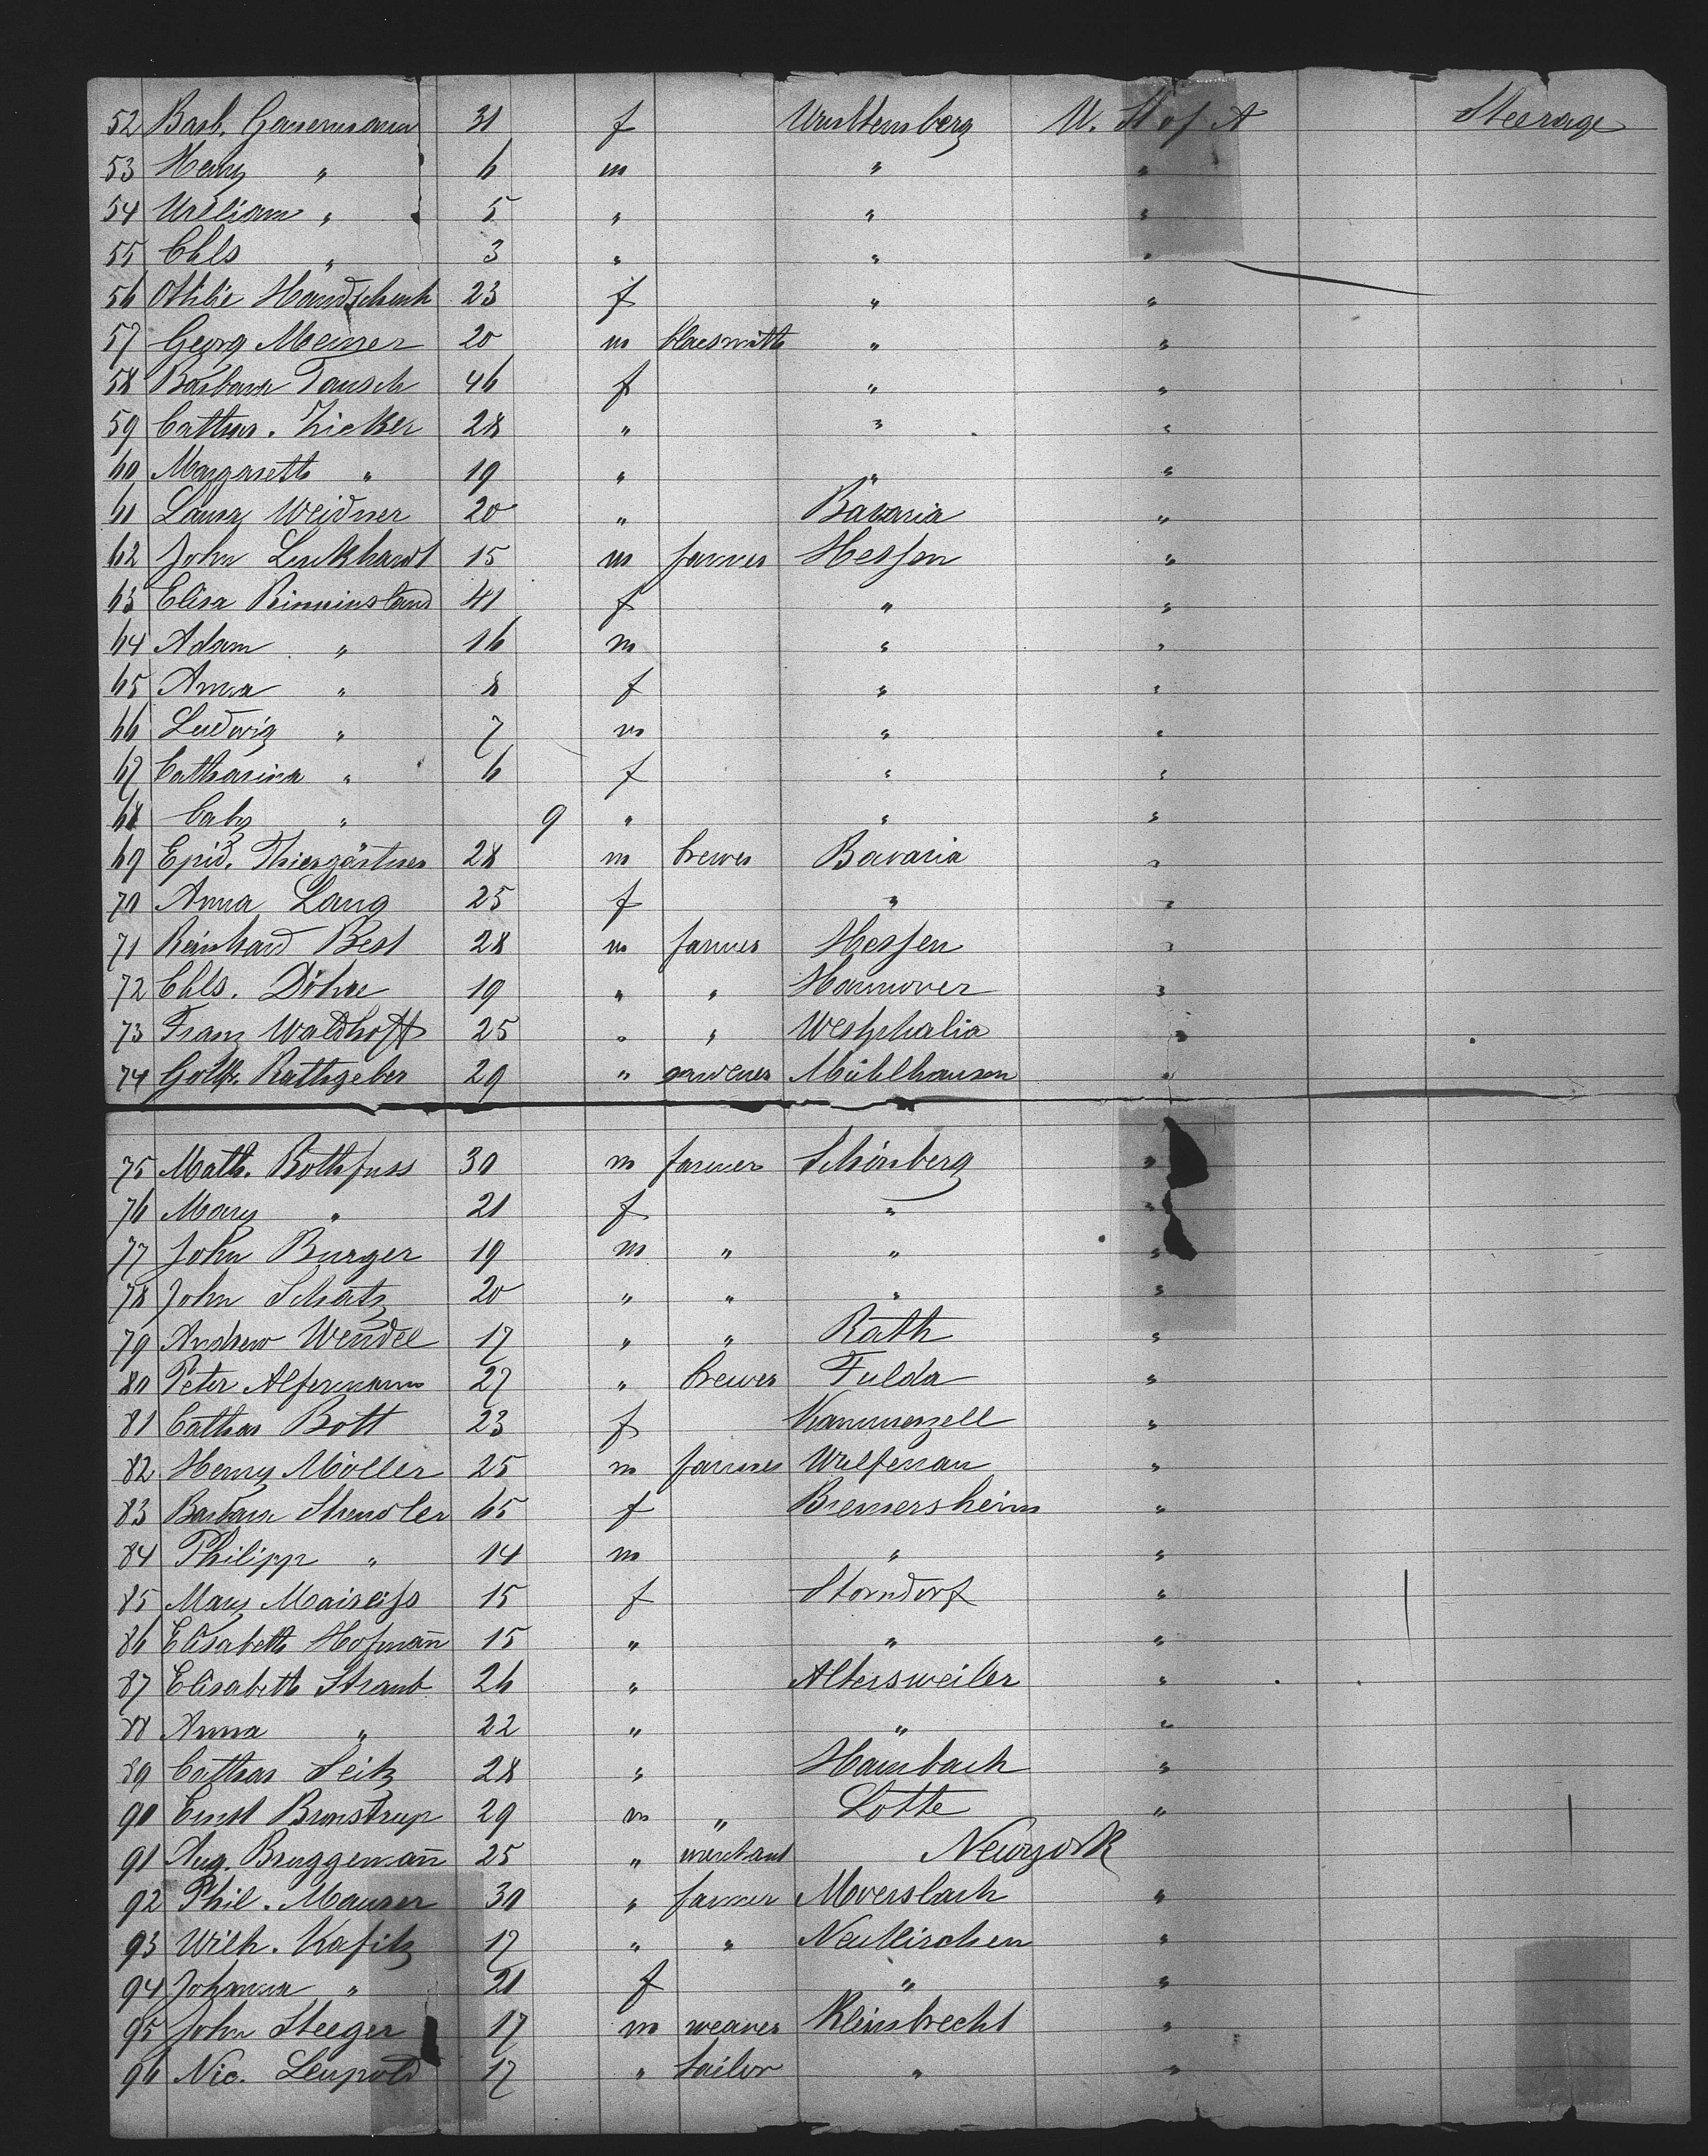 52 Barb. Gauermann 31 f Wurttemberg U. St of A Steerage
53 Henry " 6 m " "
54 William " 5 " " "
55 Chls " 3 " " "
56 Ottilie Handschuh 23 f " "
57 Georg Meiser 20 m blacsmith " "
58 Barbara Tausch 46 f " "
59 Cathar. Zicker 28 " " "
60 Margareth " 19 " " "
61 Laura Weidner 20 " Bavaria "
62 John Luckhardt 15 m farmer Hessen "
63 Elisa Rinninsland 41 f " "
64 Adam " 16 m " "
65 Anna " 8 f " "
66 Ludwig " 7 m " "
67 Catharina " 6 f " "
68 baby " 9 " " "
69 Epid. Thiergärtner 28 m brewer Bavaria "
70 Anna Lang 25 f " "
71 Reinhard Best 28 m farmer Hessen "
72 Chls. Döhne 19 " " Hannover "
73 Franz Waldhoff 25 " " Westphalia "
74 Gottfr. Rathgeber 29 " gardener Mühlhausen "
75 Math. Rothfuss 30 m farmer Schönberg "
76 Mary " 21 f " "
77 John Burger 19 m " " "
78 John Schatz 20 " " " "
79 Andrew Wendel 17 " " Rath "
80 Peter Alfermann 27 " brewer Fulda "
81 Cathar Bott 23 f Kammerzell "
82 Henry Möller 25 m farmer "
83 Barbara 65 f "
84 Philipp " 14 m " "
85 Mary 15 f Storndorf "
86 Elisabeth Hofman̄ 15 " " "
87 Elisabeth Straub 26 " Altersweiler "
88 Anna " 22 " " "
89 Cathar Seitz 28 " Hambach "
90 Ernst Bronstrup 29 m " Lotte "
91 Aug. Bruggeman̄ 25 " merchant Newyork
92 Phil. Maurer 30 " farmer "
93 Wilh. Kafitz 17 " " Neukirchen "
94 Johanna " 21 f " "
95 John Steeger 17 m weaver Kleinbrecht "
96 Nic. Leupold 17 " tailor " "